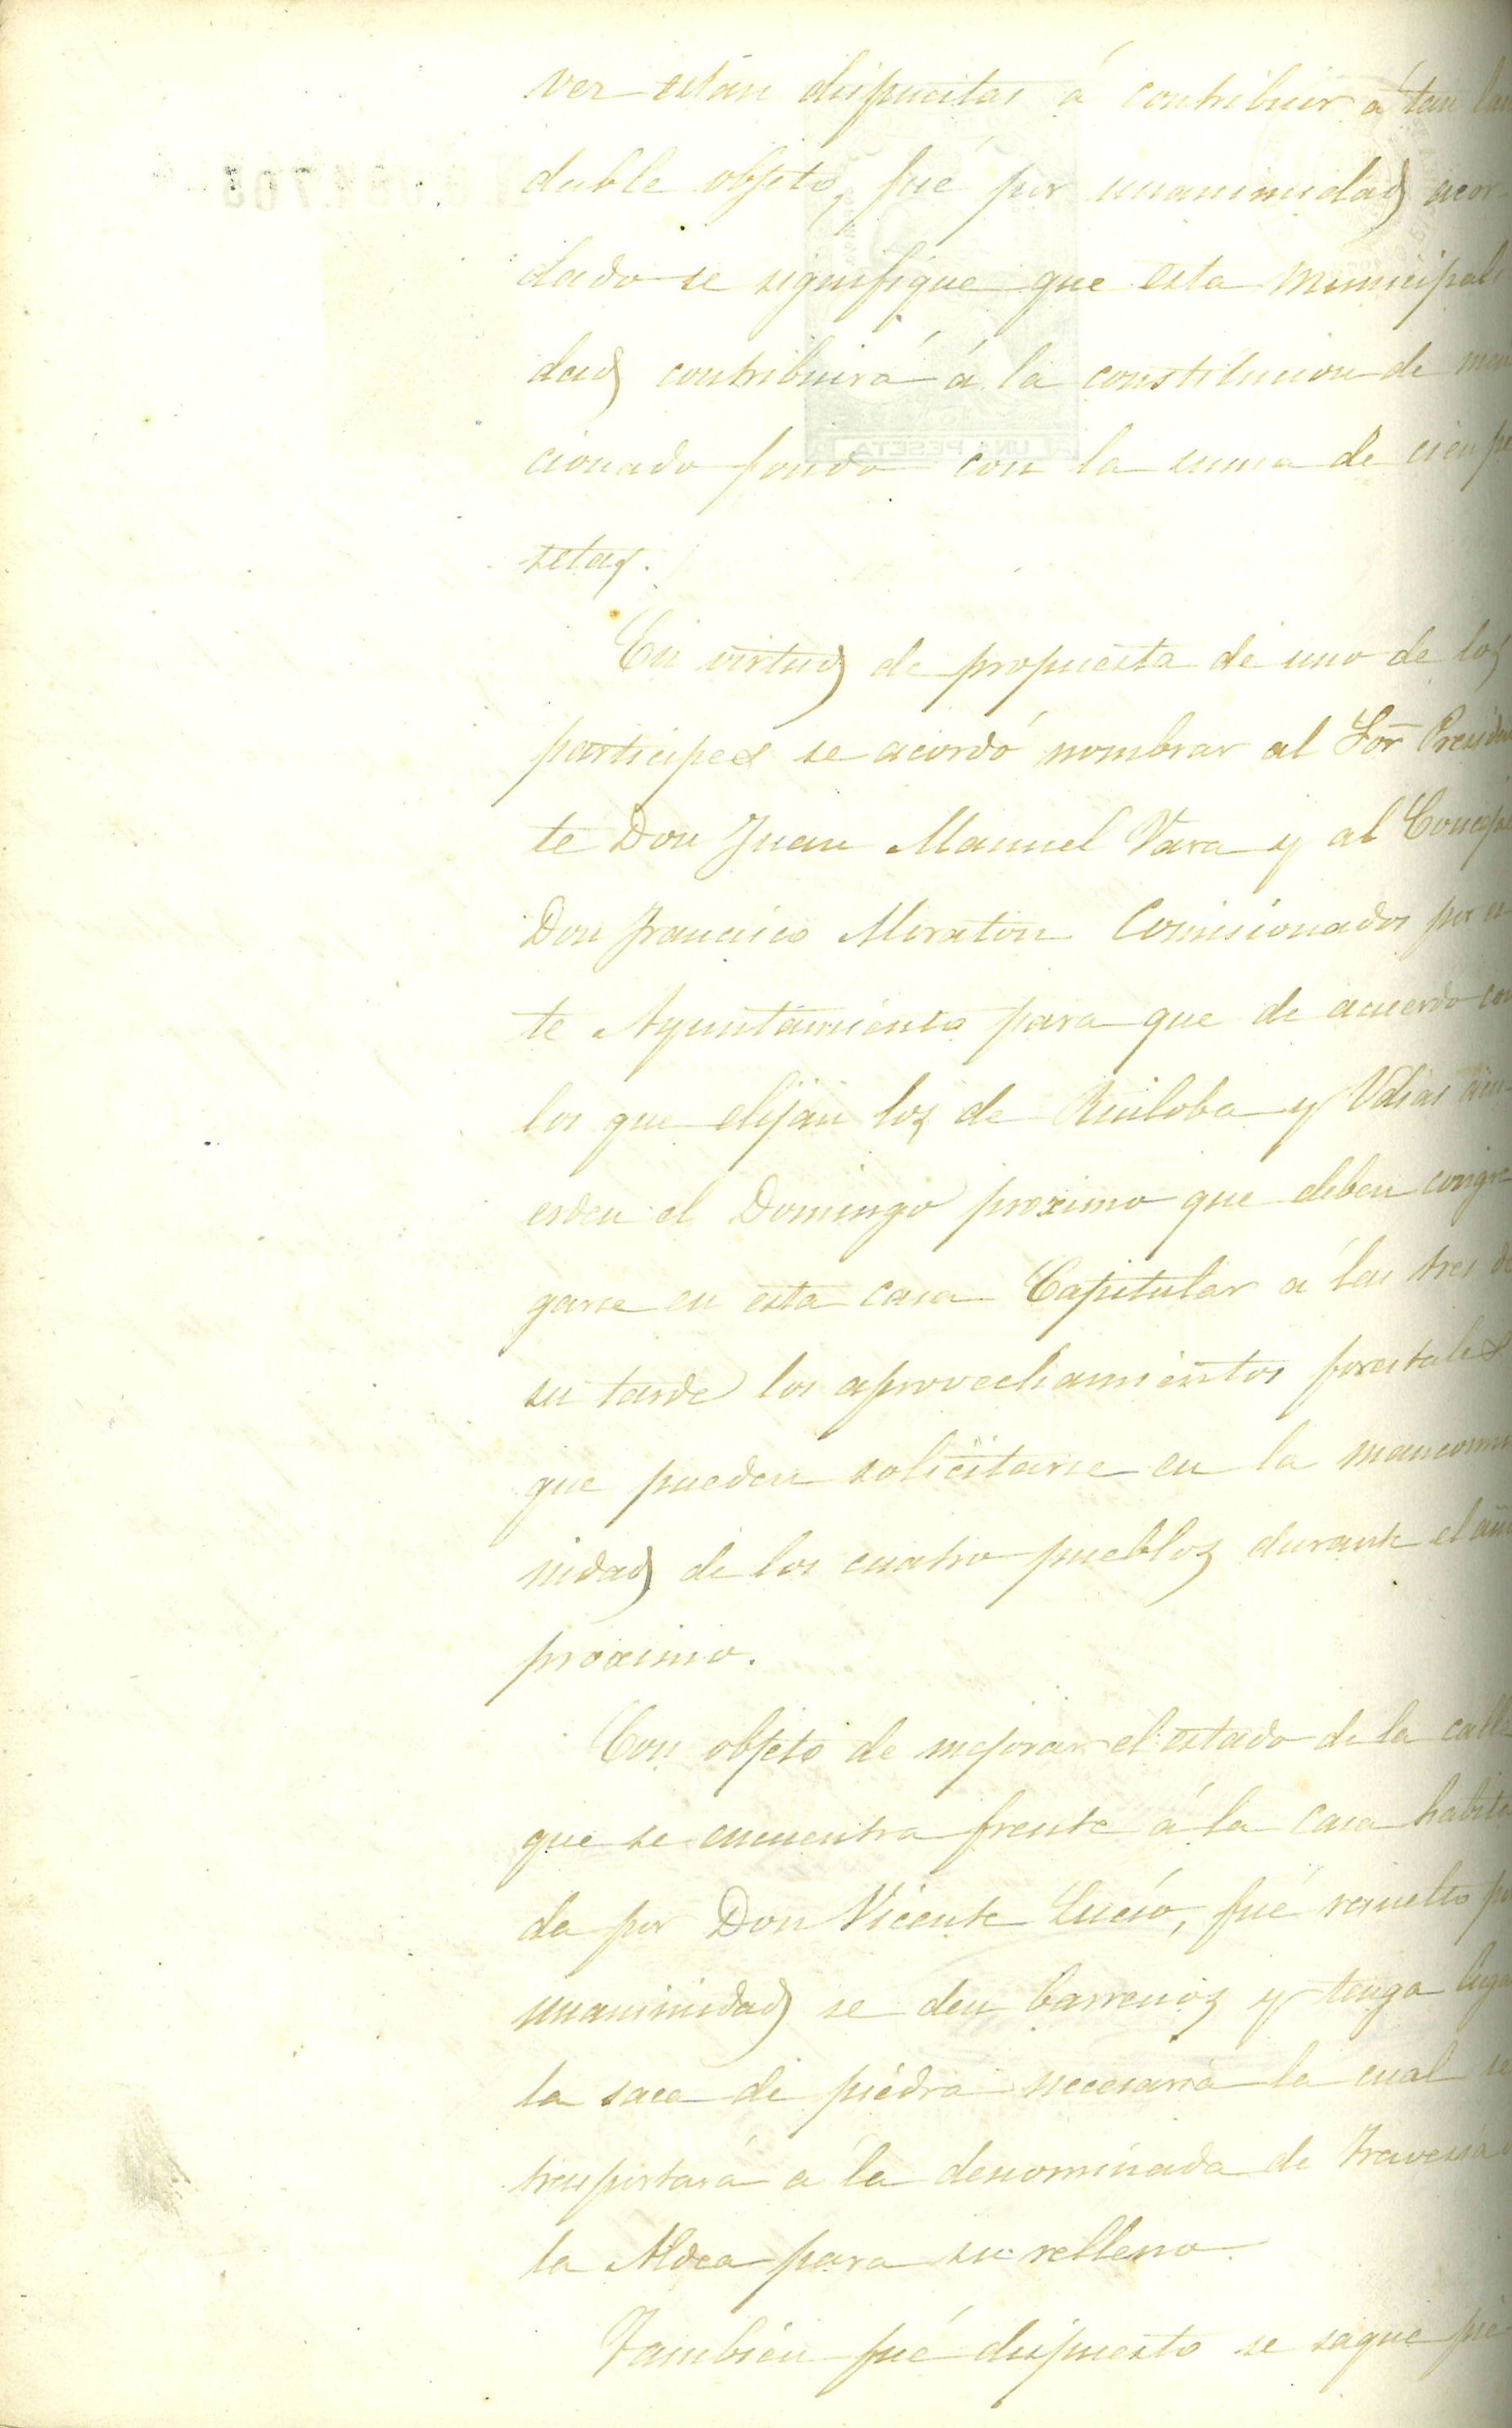 ver están dispuestas á contribuir á tan lau
dable objeto, fué por unanimidad acor
dado se signifique que esta Municipali
dad contribuirá á la constitucion de men
cionado fondo con la suma de cien pe
setas.
En virtud de propuesta de uno de los
participes se acordó nombrar al Sor Presiden
te Don Juan Manuel Vara y al Concejal
Don Francisco Miraton Comisionados por es
te Ayuntamiento para que de acuerdo con
los que elijan los de Ruiloba y Udias acu
erden el Domingo proximo que deben congre
garse en esta casa Capitular á las tres de
su tarde los aprovechamientos forestales
que pueden solicitarse en la mancomu
nidad de los cuatro pueblos durante el año
proximo.
Con objeto de mejorar el estado de la calle
que se encuentra frente á la casa habita
da por Don Vicente Lucio, fué resuelto por
unanimidad se den barrenos y tenga lugar
la saca de piedra necesaria la cual se
trasportará á la denominada de Travesia
la Aldea para su relleno.
Tambien fué dispuesto se saque pie
UNA PESETA